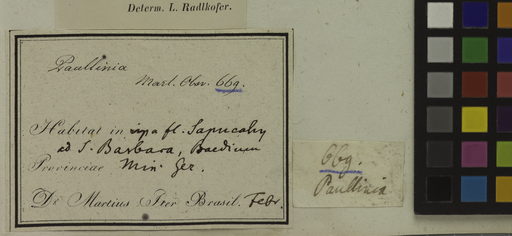 Determ. L. Radlkofer.
Paullinia
Mart. Obs. 669.
Habitat in ripa fl. Sapucahy
ad S. Barbara,
Provinciae Min. Ger.
Dr. Martius Iter Brasil. Febr.
669.
Paullinia